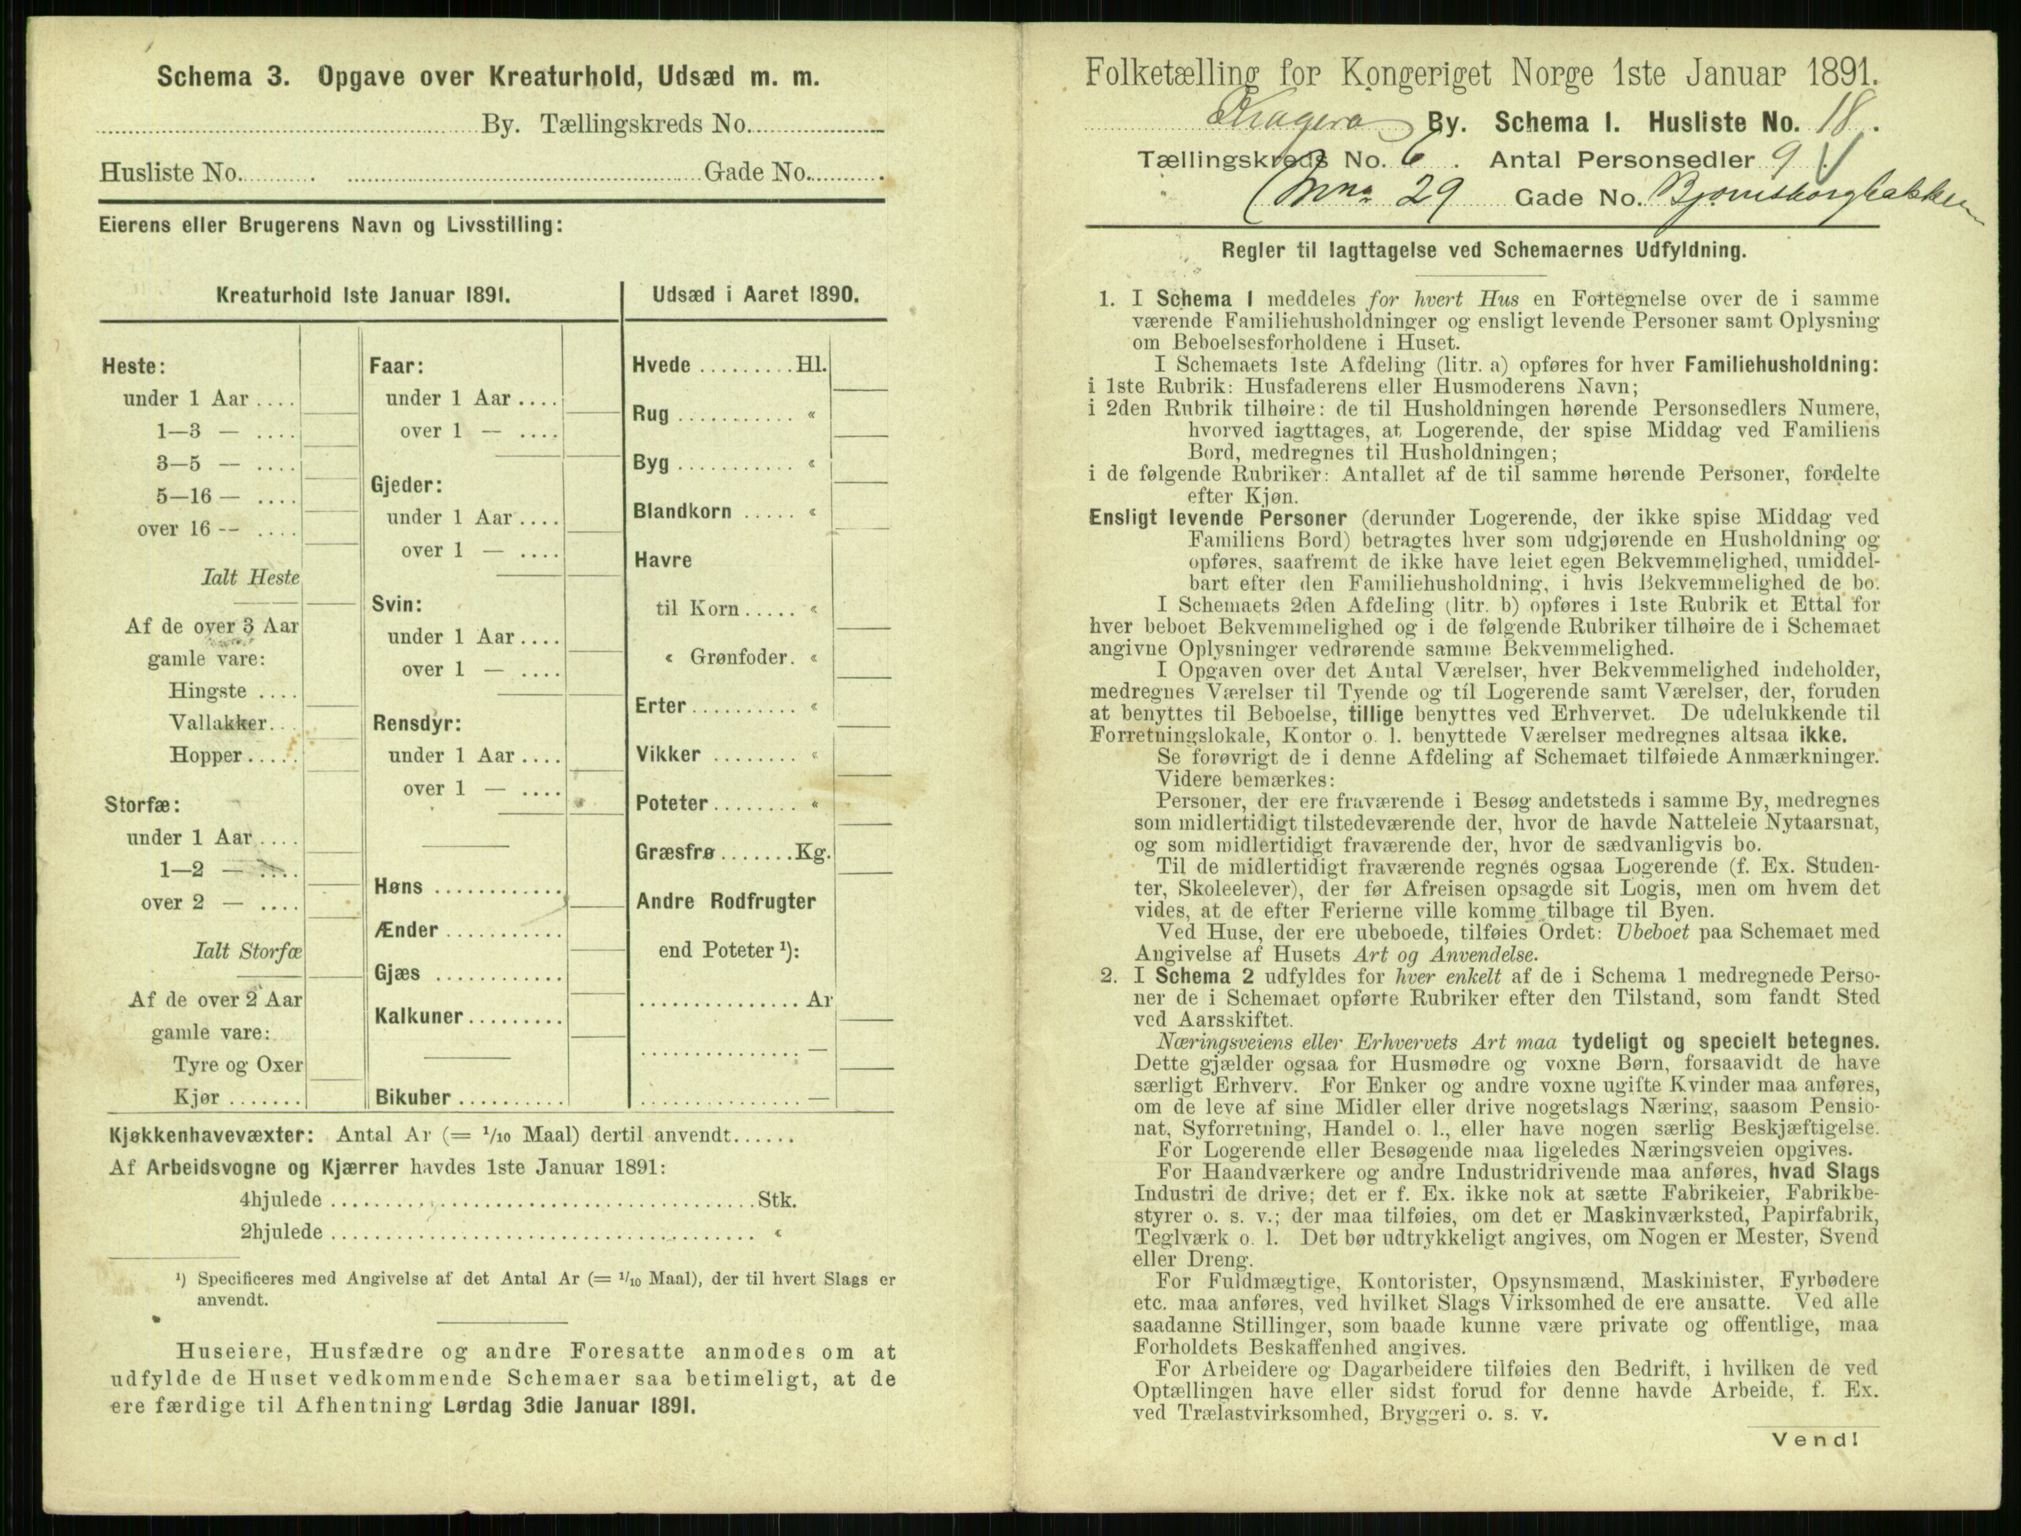 Schema 3. Opgave over Kreaturhold, Udsæd m. m.
By. Tællingskreds No.
Husliste No. Gade No.
Eierens eller Brugerens Navn og Livsstilling:
Kreaturhold 1ste Januar 1891.
Heste:
under 1 Aar ....
1—3 — ....
3—5 — ....
5—16 — ....
over 16 -- ....
Ialt Heste
Af de over 3 Aar
gamle vare:
Hingste ....
Vallakker...
Hopper.....
Storfæ:
under 1 Aar ....
1—2 — ....
over 2 — ....
Ialt Storfæ
Af de over 2 Aar
gamle vare:
Tyre og Oxer
Kjør .......
Faar:
under 1 Aar ....
over 1 — ....
Gjeder:
under 1 Aar ....
over 1 — ....
Svin:
under 1 Aar ....
over 1 — ....
Rensdyr:
under 1 Aar ....
over 1 — ....
Høns ............
Ænder ...........
Gjæs ............
Kalkuner.........
Bikuber ..........
Udsæd i Aaret 1890.
Hvede ......... Hl.
Rug ........... «
Byg ........... «
Blandkorn ..... «
Havre
til Korn ..... «
« Grønfoder. «
Erter.......... «
Vikker ........ «
Poteter........ «
Græsfrø .......Kg.
Andre Rodfrugter
end Poteter ¹):
............... Ar
............... —
............... —
Kjøkkenhavevæxter: Antal Ar (= 1/10 Maal) dertil anvendt......
Af Arbeidsvogne og Kjærrer havdes 1ste Januar 1891:
4hjulede ........................................Stk.
2hjulede ........................................ «
¹) Specificeres med Angivelse af det Antal Ar (= 1/10 Maal), der til hvert Slags er
anvendt.
Huseiere, Husfædre og andre Foresatte anmodes om at
udfylde de Huset vedkommende Schemaer saa betimeligt, at de
ere færdige til Afhentning Lørdag 3die Januar 1891.
Folketælling for Kongeriget Norge 1ste Januar 1891.
Kragerø By. Schema I. Husliste No. 18.
Tællingskreds No. 6. Antal Personsedler 9
29 Gade No. Bjornsborgbakken
Regler til Iagttagelse ved Schemaernes Udfyldning.
1. I Schema 1 meddeles for hvert Hus en Fortegnelse over de i samme
værende Familiehusholdninger og ensligt levende Personer samt Oplysning
om Beboelsesforholdene i Huset.
I Schemaets 1ste Afdeling (litr. a) opføres for hver Familiehusholdning:
i 1ste Rubrik: Husfaderens eller Husmoderens Navn;
i 2den Rubrik tilhøire: de til Husholdningen hørende Personsedlers Numere,
hvorved iagttages, at Logerende, der spise Middag ved Familiens
Bord, medregnes til Husholdningen;
i de følgende Rubriker: Antallet af de til samme hørende Personer, fordelte
efter Kjøn.
Ensligt levende Personer (derunder Logerende, der ikke spise Middag ved
Familiens Bord) betragtes hver som udgjørende en Husholdning og
opføres, saafremt de ikke have leiet egen Bekvemmelighed, umiddel-
bart efter den Familiehusholdning, i hvis Bekvemmelighed de bo.
I Schemaets 2den Afdeling (litr. b) opføres i 1ste Rubrik et Ettal for
hver beboet Bekvemmelighed og i de følgende Rubriker tilhøire de i Schemaet
angivne Oplysninger vedrørende samme Bekvemmelighed.
I Opgaven over det Antal Værelser, hver Bekvemmelighed indeholder,
medregnes Værelser til Tyende og til Logerende samt Værelser, der, foruden
at benyttes til Beboelse, tillige benyttes ved Erhvervet. De udelukkende til
Forretningslokale, Kontor o. l. benyttede Værelser medregnes altsaa ikke.
Se forøvrigt de i denne Afdeling af Schemaet tilføiede Anmærkninger.
Videre bemærkes:
Personer, der ere fraværende i Besøg andetsteds i samme By, medregnes
som midlertidigt tilstedeværende der, hvor de havde Natteleie Nytaarsnat,
og som midlertidigt fraværende der, hvor de sædvanligvis bo.
Til de midlertidigt fraværende regnes ogsaa Logerende (f. Ex. Studen-
ter, Skoleelever), der før Afreisen opsagde sit Logis, men om hvem det
vides, at de efter Ferierne ville komme tilbage til Byen.
Ved Huse, der ere ubeboede, tilføies Ordet: Ubeboet paa Schemaet med
Angivelse af Husets Art og Anvendelse.
2. I Schema 2 udfyldes for hver enkelt af de i Schema 1 medregnede Perso-
ner de i Schemaet opførte Rubriker efter den Tilstand, som fandt Sted
ved Aarsskiftet.
Næringsveiens eller Erhvervets Art maa tydeligt og specielt betegnes.
Dette gjælder ogsaa for Husmødre og voxne Børn, forsaavidt de have
særligt Erhverv. For Enker og andre voxne ugifte Kvinder maa anføres,
om de leve af sine Midler eller drive nogetslags Næring, saasom Pensio-
nat, Syforretning, Handel o. l., eller have nogen særlig Beskjæftigelse.
For Logerende eller Besøgende maa ligeledes Næringsveien opgives.
For Haandværkere og andre Industridrivende maa anføres, hvad Slags
Industri de drive; det er f. Ex. ikke nok at sætte Fabrikeier, Fabrikbe-
styrer o. s. v.; der maa tilføies, om det er Maskinværksted, Papirfabrik,
Teglværk o. l. Det bør udtrykkeligt angives, om Nogen er Mester, Svend
eller Dreng.
For Fuldmægtige, Kontorister, Opsynsmænd, Maskinister, Fyrbødere
etc. maa anføres, ved hvilket Slags Virksomhed de ere ansatte. Ved alle
saadanne Stillinger, som baade kunne være private og offentlige, maa
Forholdets Beskaffenhed angives.
For Arbeidere og Dagarbeidere tilføies den Bedrift, i hvilken de ved
Optællingen have eller sidst forud for denne havde Arbeide, f. Ex.
ved Trælastvirksomhed, Bryggeri o. s. v.
Vend!